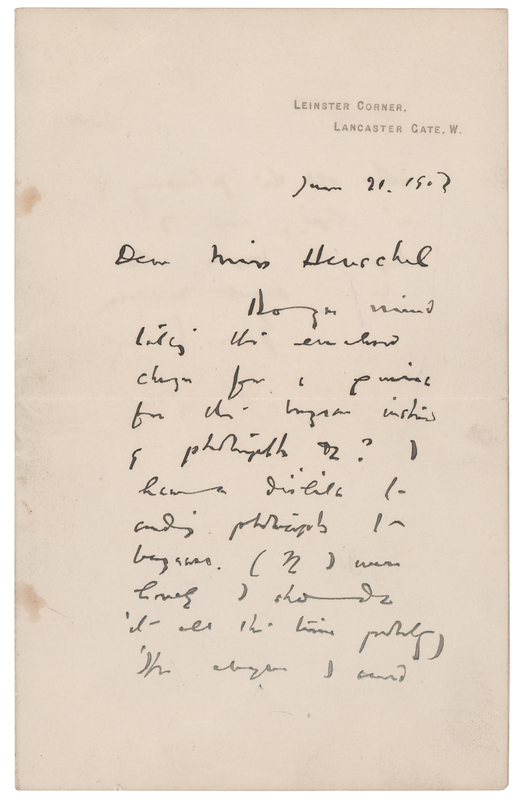 LEINSTER CORNER,
LANCASTER GATE, W.
June 21. 1903
Dear Miss Herschel
Do you mind
taking the enclosed
cheque for a guinea
for the bazaar instead
of photographs &c? I
have a dislike to
sending photographs to
bazaars. (If I were
lovely I should do
it all the time probably)
The I send